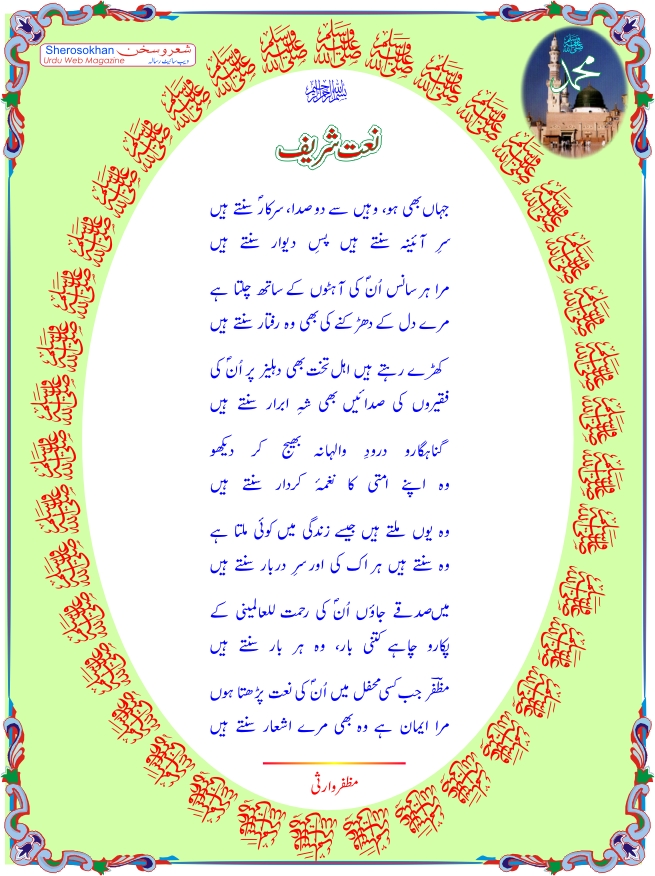 Sherosokhan شعر و سخن
Urdu Web Magazine ویب سائیٹ رسالہ
محمد ﷺ
بسم اللہ الرحمن الرحیم
نعت شریف
جہاں بھی ہو، وہیں سے دو صدا، سرکارؐ سنتے ہیں
سرِ آئینہ سنتے ہیں پسِ دیوار سنتے ہیں
مرا ہر سانس اُنؐ کی آہٹوں کے ساتھ چلتا ہے
مرے دل کے دھڑکنے کی بھی وہ رفتار سنتے ہیں
کھڑے رہتے ہیں اہل تخت بھی دہلیز پر اُنؐ کی
فقیروں کی صدائیں بھی شہِ ابرار سنتے ہیں
گناہگارو درودِ والہانہ بھیج کر دیکھو
وہ اپنے امتی کا نغمۂ کردار سنتے ہیں
وہ یوں ملتے ہیں جیسے زندگی میں کوئی ملتا ہے
وہ سنتے ہیں ہر اک کی اور سرِ دربار سنتے ہیں
میں صدقے جاؤں اُنؐ کی رحمت للعالمینی کے
پکارو چاہے کتنی بار، وہ ہر بار سنتے ہیں
مظفرؔ جب کسی محفل میں اُنؐ کی نعت پڑھتا ہوں
مرا ایمان ہے وہ بھی مرے اشعار سنتے ہیں
مظفر وارثی
صلی اللہ علیہ وسلم